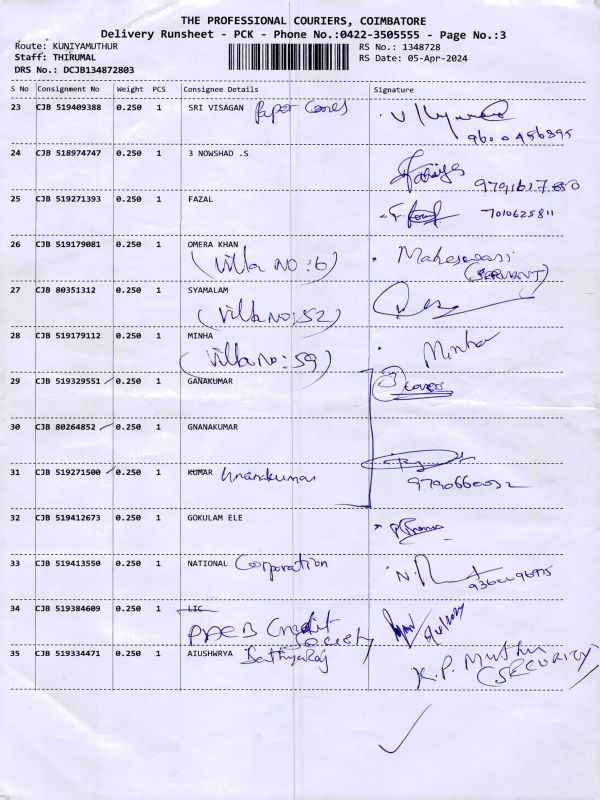 THE PROFESSIONAL COURIERS, COIMBATORE
Delivery Runsheet - PCK - Phone No.:0422-3505555 - Page No.:3
Route: KUNIYAMUTHUR RS No.: 1348728
Staff: THIRUMAL RS Date: 05-Apr-2024
DRS No.: DCJB134872803
S No Consignment No Weight PCS Consignee Details Signature
23 CJB 519409388 0.250 1 SRI VISAGAN Paper Cones
9600456595
24 CJB 518974747 0.250 1 3 NOWSHAD .S
25 CJB 519271393 0.250 1 FAZAL 7010625811
26 CJB 519179081 0.250 1 OMERA KHAN Maheswari
(Villa NO: 6) (SERVANT)
27 CJB 80351312 0.250 1 SYAMALAM
(Villa NO: 52)
28 CJB 519179112 0.250 1 MINHA Minha
(Villa NO: 59)
29 CJB 519329551 0.250 1 GANAKUMAR 3 covers
30 CJB 80264852 0.250 1 GNANAKUMAR
31 CJB 519271500 0.250 1 KUMAR Gnanakumar 9790660032
32 CJB 519412673 0.250 1 GOKULAM ELE
33 CJB 519413550 0.250 1 NATIONAL Corporation
34 CJB 519384609 0.250 1 LIC
Credit Society
35 CJB 519334471 0.250 1 AIUSHWRYA Sathyaraj K.P. Muthu
(SECURITY)